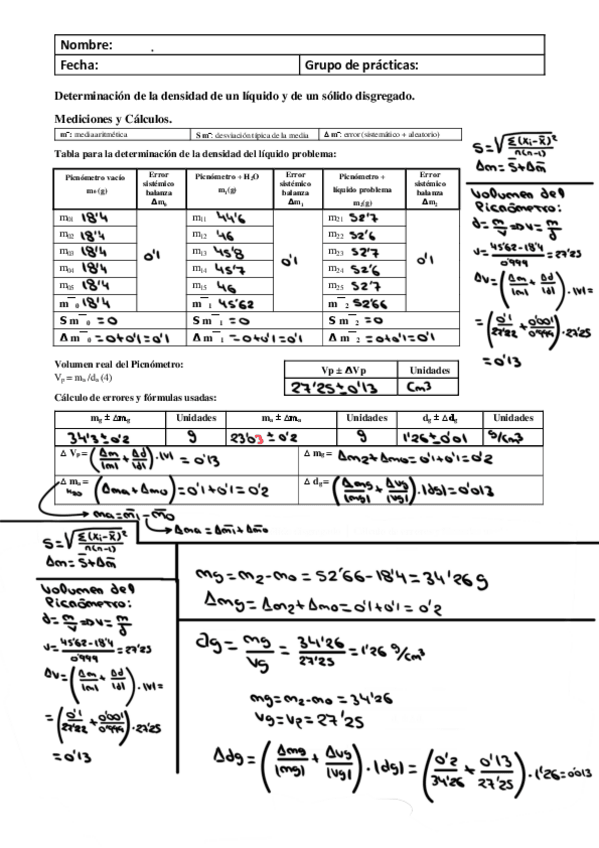 Nombre:
Fecha: Grupo de prácticas:
Determinación de la densidad de un líquido y de un sólido disgregado.
Mediciones y Cálculos.
m¯: media aritmética S m¯: desviación típica de la media Δ m¯: error (sistemático + aleatorio)
Tabla para la determinación de la densidad del líquido problema:
Picnómetro vacío m₀ (g) Error sistémico balanza Δm₀ Picnómetro + H₂O m₁(g) Error sistémico balanza Δm₁ Picnómetro + líquido problema m₂(g) Error sistémico balanza Δm₂
m01 18'4 0'1 m11 44'6 0'1 m21 52'7 0'1
m02 18'4 m12 46 m22 52'6
m03 18'4 m13 45'8 m23 52'7
m04 18'4 m14 45'7 m24 52'6
m05 18'4 m15 46 m25 52'7
m¯0 18'4 m¯1 45'62 m¯2 52'66
S m¯0 = 0 S m¯1 = 0 S m¯2 = 0
Δ m¯0 = 0+0'1=0'1 Δ m¯1 = 0+0'1=0'1 Δ m¯2 = 0+0'1=0'1
S=√(Σ(xi-x̄)²/n(n-1))
Δm = S̄+Δm̄
Volumen del
Picnómetro:
d=m/v ⇒ v=m/d
v=45'62-18'4/0'999=27'25
Δv=(Δm/|m|+Δd/|d|)·|v|=
=(0'1/27'22+0'001/0'999)·27'25
=0'13
Volumen real del Picnómetro:
Vp = ma /da (4)
Vp ± ΔVp Unidades
27'25±0'13 Cm3
Cálculo de errores y fórmulas usadas:
mg ± Δmg Unidades ma ± Δma Unidades dg ± Δdg Unidades
34'3±0'2 g 23'63±0'2 g 1'26±0'01 g/cm³
Δ Vp = (Δm/|m|+Δd/|d|)·|v| = 0'13 Δ mg = Δm2+Δm0=0'1+0'1=0'2
Δ ma = H2O (Δma+Δmo)=0'1+0'1=0'2 Δ dg = (Δmg/|mg|+Δvg/|vg|)·|dg|=0'013
ma=m̄i-m̄o
Δma=Δm̄i+Δm̄o
S=√(Σ(xi-x̄)²/n(n-1))
Δm = S̄+Δm̄
Volumen del
Picnómetro:
d=m/v ⇒ v=m/d
v=45'62-18'4/0'999=27'25
Δv=(Δm/|m|+Δd/|d|)·|v|=
=(0'1/27'22+0'001/0'999)·27'25
=0'13
mg=m2-mo=52'66-18'4=34'26g
Δmg=Δm2+Δmo=0'1+0'1=0'2
dg=mg/vg=34'26/27'25=1'26 g/cm³
mg=m2-mo=34'26
vg=vp=27'25
Δdg=(Δmg/|mg|+Δvg/|vg|)·|dg|=(0'2/34'26+0'13/27'25)·1'26=0'013